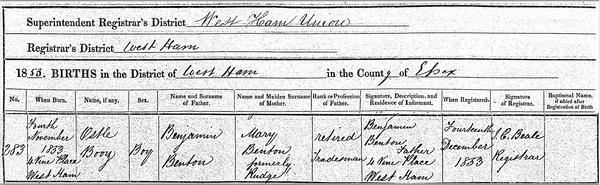 Superintendent Registrar's District West Ham Union
Registrar's District West Ham
1853. BIRTHS in the District of West Ham in the County of Essex
No. When Born. Name, if any. Sex. Name and Surname of Father. Name and Maiden Surname of Mother. Rank or Profession of Father. Signature, Description, and Residence of Informant. When Registered. Signature of Registrar. Baptismal Name, if added after Registration of Birth
283 Fourth November 1853 4 Vine Place West Ham
Ostle Booy
Boy
Benjamin Benton
Mary Benton formerly Rudge
retired Tradesman
Benjamin Benton Father 4 Vine Place West Ham
Fourteenth December 1853
C. E. Beale Registrar